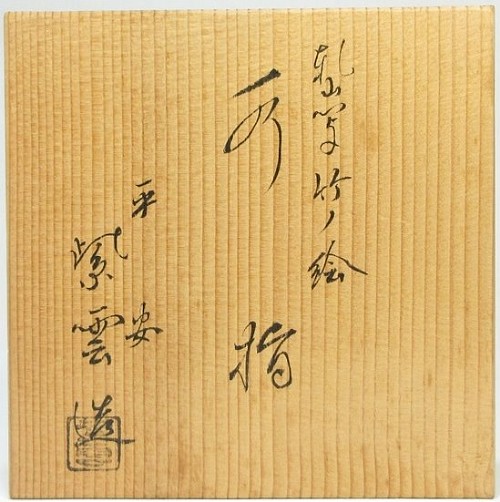 乾山写竹ノ絵
水指
平安
紫雲造